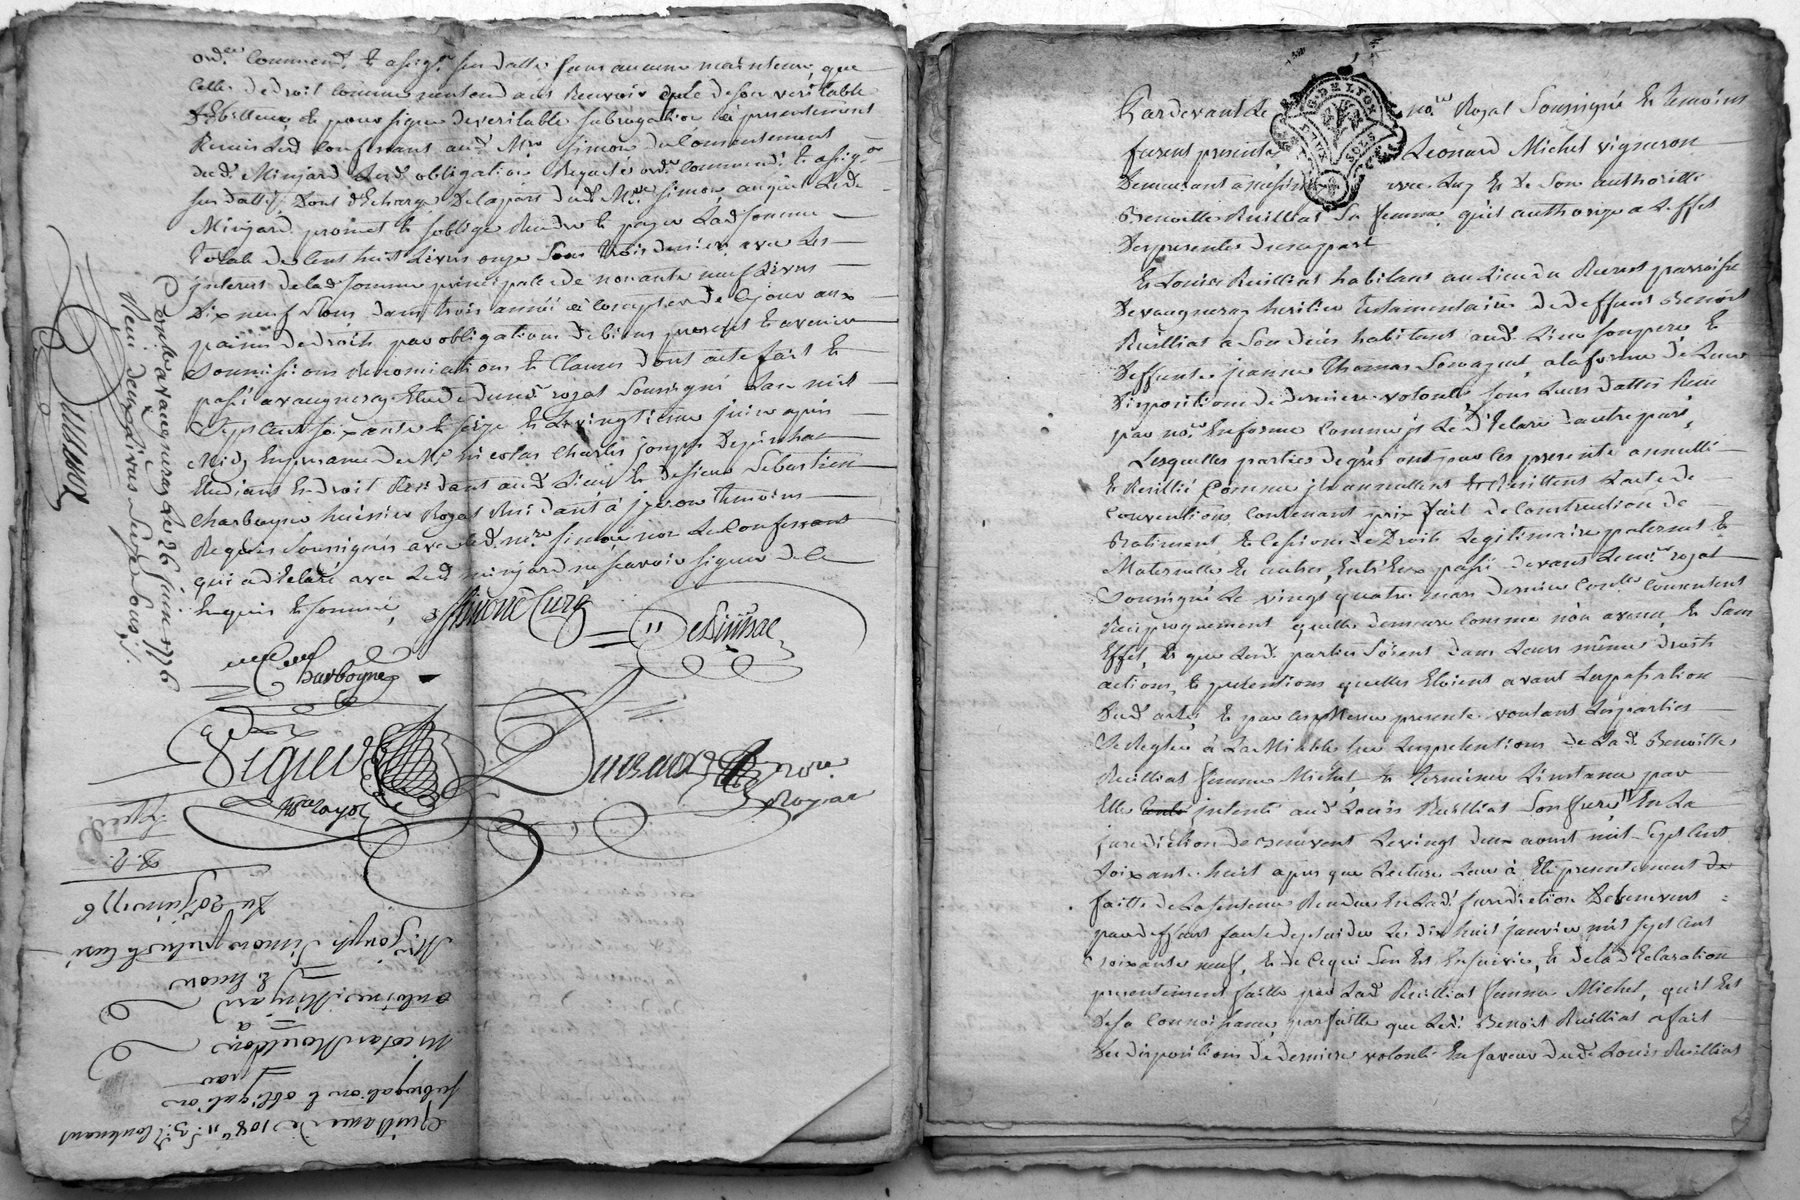 ord.ce Command.t et assig.n sur datte sans aucune mainteneur, que
celle de droit comme n'entendant Recevoir que de son veritable
Debitteur, et pour signe de veritable subrogation a presentement
Remis led. Confessant aud. M.re Simon du Consentement
dud. Minjard led. obligation Requete ord.ce Command.t et assig.on
sus dattés, Dont décharge De la part dud. M.re Simon, auquel led.
Minjard promet et soblige Rendre et payer lad. somme
Totale de Cent huit Livres onze Sous trois deniers avec les
interets de lad. somme principale de nonante neuf Livres
Dix neuf sous dans trois année a Compter de Ce jour aux
paines de droit, par obligation de biens presents et avenir
soumissions renonciations et Clauses dont acte fait et
passé a vaugneray Etude dud. no.re royal soussigné Lan mil
Sept Cent soixante et seize et Le vingtieme juin après
Midy En presence de M.e nicolas Charles joseph Depinhac
Etudiant En droit Residant aud. Lieu et de sieur Sebastien
Charboyne huissier Royal Residant à yzeron temoins
Requis Soussignés avec led. M.re Simon non le Confessant
qui a declaré avec led. minjard ne scavoir signer de Ce
Enquis et sommé,
Simond Curé
DeSinhac
Charboyne
Viguier
n.re royal
no.re
Royal
Controllé a vaugneray Le 26 juin 1776
Reçu deux Livres Seize Sous
Du 20 juin 1776
M.re Joseph Simon prêtre et Curé
D yzeron
antoine Minjard
a
nicolas
par
subrogation et obligation
Quittance de 108# 11 s. 3 d. Contenant
G. DE LYON
DEUX SOLS
Pardevant Le no.re Royal Soussigné Et temoins
furent presents Léonard Michel vigneron
Demeurant a avec Luy Et De Son authorité
Benoitte Ruilliat Sa femme, qu'il authorise a Leffet
Des presentes Dune part
Et Louis Ruilliat habitant au Lieu du Recret parroisse
De vaugneray heritier testamentaire de deffunt Benoit
Ruilliat a Son deces habitant aud. Lieu Son pere Et
Deffunte jeanne Thomas Son ayeul, a la forme de Leurs
Dispositions de derniere volonté sous Leurs dattes Reçu
par no.re En forme Comme il Le déclare dautre part,
Lesquelles parties de gré ont par les presentes annullé
Et Resillié Comme ils annullent Et Resillient Lacte de
Conventions, Contenant prix fait de Construction de
Batiment Et Cession de Droits Legitimaire paternel Et
Maternelle Et autres, Entr'Eux passé devant Le no.re royal
Soussigné Le vingt quatre mars dernier Con.llé Consentent
Reciproquement quelle demeure Comme non avenu, Et Sans
Effet, Et que Lesd. parties Soient dans Leurs mêmes droits
actions, Et pretentions quelles Etoient avant La passation
Dud. acte, Et par Ces Mêmes presentes voulant Les parties
Se Regler à La Miable sur Les pretentions de Lad. Benoitte
Ruilliat femme Michel, Et terminer Linstance par
Elle intenté aud. Louis Ruilliat Son frere En La
jurisdiction de Benevent Le vingt deux aoust mil Sept Cent
Soixante huit après que Lecture Leur à Eté presentement
faitte de La Sentence Rendue En Lad. Jurisdiction De benevent
par deffaut faute de plaider Le dix huit janvier mil Sept Cent
Soixante neuf, Et de Ce qui Sen Est Ensuivie, Et de La declaration
presentement faitte par Lad. Ruilliat femme Michel, qu'il Est
De Sa Connoissance parfaitte que Led. Benoit Ruilliat a fait
Des dispositions de derniere volonté En faveur dud. Louis Ruilliat